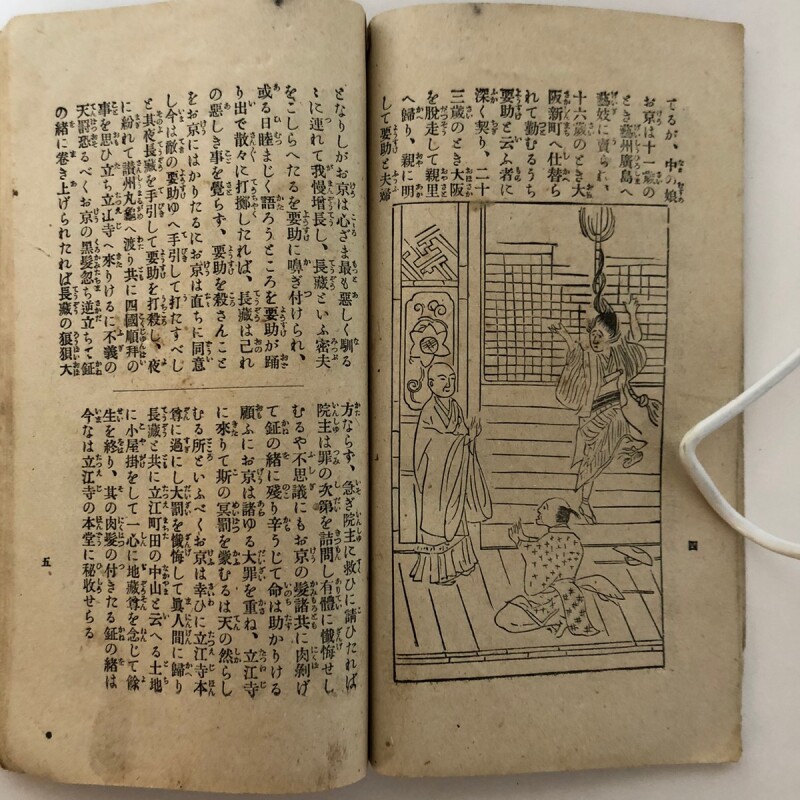 てるが、中の娘
お京は十一歳の
とき藝州廣島へ
藝妓に賣られ、
十六歳のとき大
阪新町へ仕替ら
れて勤むるうち
要助と云ふ者に
深く契り、二十
三歳のとき大阪
を脱走して親里
へ歸り、親に明
して要助と夫婦
四
となりしがお京は心ざま最も惡しく馴る
ゝに連れて我慢增長し、長藏といふ密夫
をこしらへたるを要助に嗅ぎ付けられ、
或る日睦まじく語ろうところを要助が踊
り出で散々に打擲したれば、長藏は己れ
の惡しき事を覺らず、要助を殺さんこと
をお京にはかりたるにお京は直ちに同意
し今は敵の要助ゆへ手引して打たすべし
と其夜長藏を手引して要助を打殺し、夜
に紛れて讃州丸龜へ渡り共に四國順拜の
事を思ひ立ち立江寺へ來りけるに不義の
天罰恐るべくお京の黑髮忽ち逆立ちて鉦
の緒に卷き上げられたれば長藏の狼狽大
方ならず、急ぎ院主に救ひに請ひたれば
院主は罪の次第を詰問し有體に懺悔せし
むるや不思議にもお京の髮諸共に肉剝げ
て鉦の緒に殘り辛うじて命は助かりける
願ふにお京は諸ゆる大罪を重ね、立江寺
に來りて斯の冥罰を蒙むるは天の然らし
むる所といふべくお京は幸ひに立江寺本
尊に過にし大罪を懺悔して眞人間に歸り
長藏と共に立江町田の中山と云へる土地
に小屋掛をして一心に地藏尊を念じて餘
生を終り、其の肉髮の付きたる鉦の緒は
今なほ立江寺の本堂に秘收せらる
五